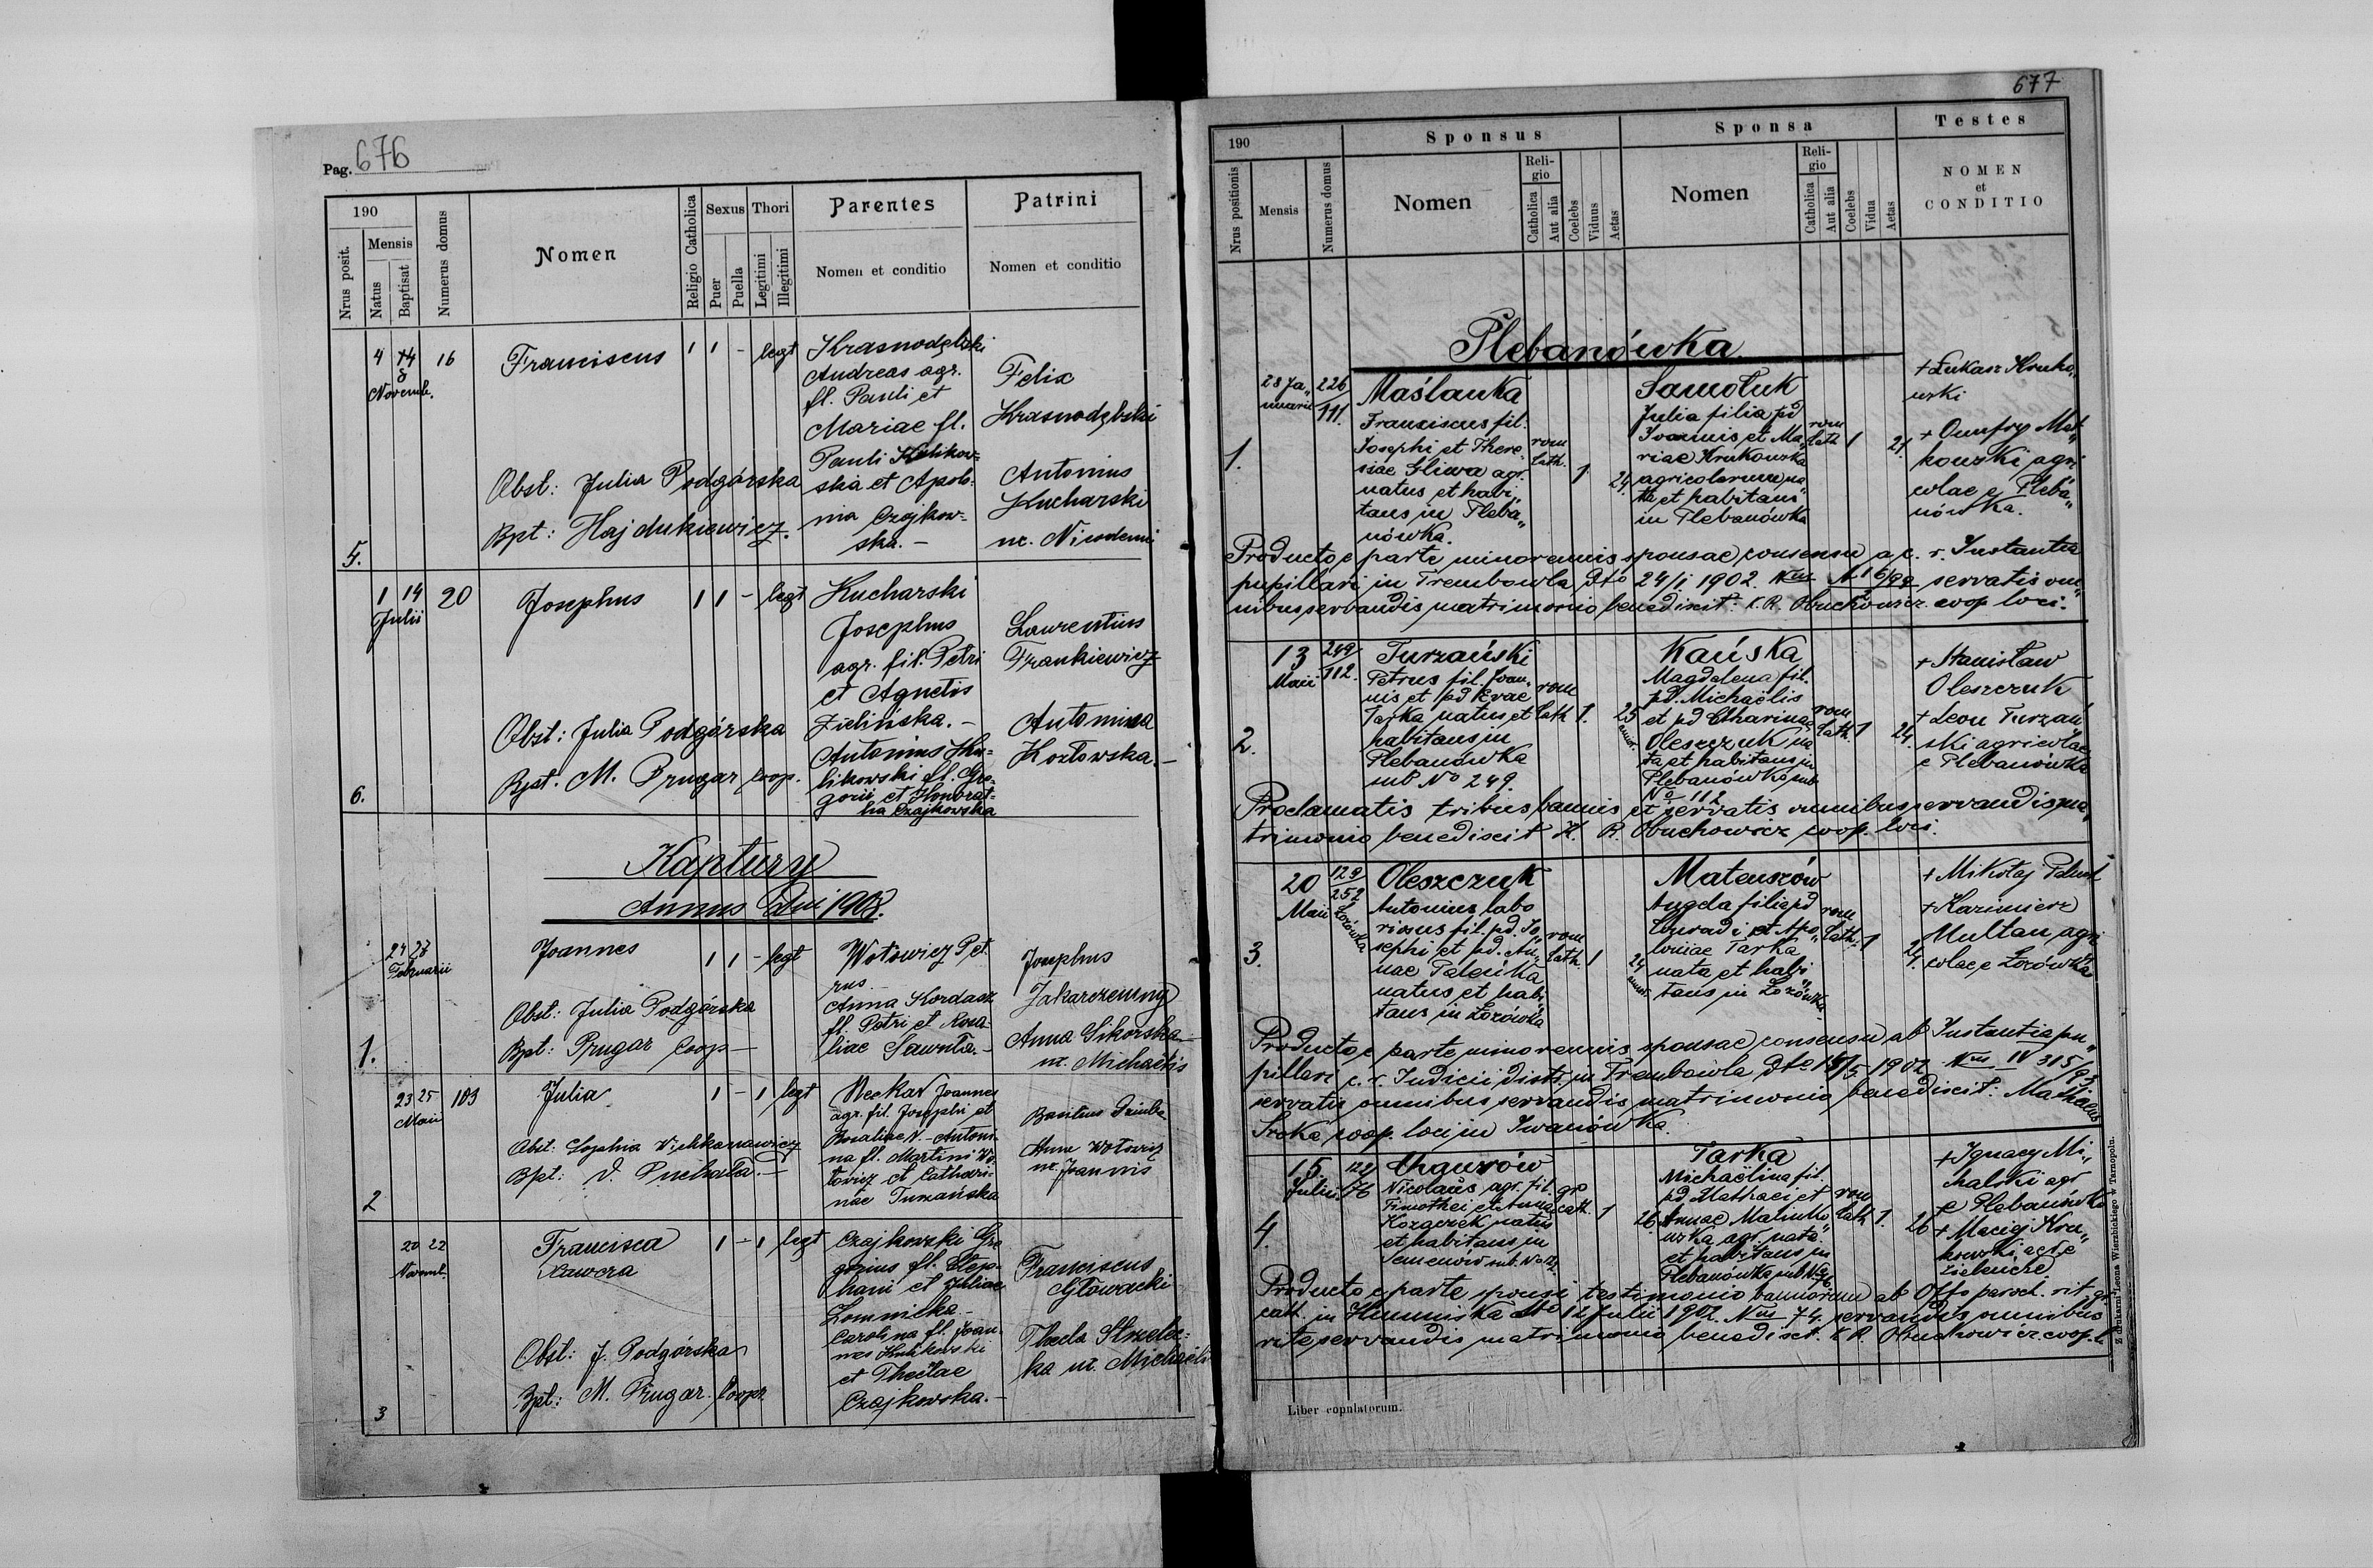 Pag. 676
190
Nrus posit.
Mensis
Natus
Baptisat
Numerus domus
Nomen
Religio Catholica
Sexus
Puer
Puella
Thori
Legitimi
Illegitimi
Parentes
Nomen et conditio
Patrini
Nomen et conditio
5.
4 14
8
Novemb.
16
Franciscus
1 1 - legt
Obst: Julia Podgórska
Bpt: Hajdukiewicz.
Krasnodębski
Andreas agr.
fl. Pauli et
Mariae fl.
Pauli Kulikow-
ska et Apolo-
nia Czajkow-
ska.-
Felix
Krasnodębski
Antonius
Kucharski
nr. Nicodemi
6.
1 14
Julii
20
Josephus
1 1 - legt
Obst: Julia Podgórska
Bpt. M. Prugar Coop.
Kucharski
Josephus
agr. fil. Petri
et Agnetis
Zielińska.-
Antonius Ku-
likowski fl. Gre-
gorii et Honorat-
ha Czajkowska
Laurentius
Frankiewicz
Antonina
Kozłowska.-
Kaptury
Annus Dni 1903.
1.
24 28
Februarii
Joannes
1 1 - legt
Obst: Julia Podgórska
Bpt: Prugar Coop-
Wołowicz Pet-
rus
Anna Kordasz
fl. Petri et Rosa-
liae Sawuła.-
Josephus
Anna Sikorska
nr. Michaëlis
2
23 25
Maii
103
Julia
1 - 1 legt
Obst: Sophia
Bpt: V. Puchała.-
Joannes
agr. fil. Josephi et
Rosaliae N.- Antoni-
na fl. Martini Wo-
łowicz et Cathari-
nae Turzańska
Basilius
Anna Wołowicz
nr. Joannis
3
20 22
Novemb.
Francisca
Xawera
1 - 1 legt
Obst: J. Podgórska
Bpt: M. Prugar. Coop.
Czajkowski Gre
gorius fl. Step-
hani et Juliae
Łomnicka.-
Carolina fl. Joan-
nes Kulikowski
et Theclae
Czajkowska.-
Franciscus
Głowacki
Thecla Strzelec-
ka nr. Michaëli
677
190
Nrus positionis
Mensis
Numerus domus
Sponsus
Nomen
Reli-
gio
Catholica
Aut alia
Coelebs
Viduus
Aetas
Sponsa
Nomen
Reli-
gio
Catholica
Aut alia
Coelebs
Vidua
Aetas
Testes
NOMEN
et
CONDITIO
Plebanówka
1.
28 Ja„
nuarii
226
111.
Maślanka
Franciscus fil.
Josephi et There„
siae Gliwa agr.
natus et habi„
tans in Pleba„
nówka.
rom
cath.
1
24
Samoluk
Julia filia pd
Joannis et Ma„
riae Krukowska
agricolarum na„
ta et habitans
in Plebanówka
rom
cath
1
21.
+ Łukasz Kruko„
wski
+ Onufry Mat„
kowski agri
colae e Pleba„
nówka.
Producto e parte minorennis sponsae consensu a c. r. Instantia
pupillari in Trembowla dto 24/1 1902 Nrus A 16/99 servatis om„
nibus servandis matrimonio benedixit: K. R. Obuchowicz coop loci.
2.
13
Maii
249/
112.
Turzański
Petrus fil. Joan„
nis et pd Evae
Tarka natus et
habitans in
Plebanówka
sub No 249.
rom
cath
1.
25
annor.
Kańska
Magdalena fil.
pd. Michaëlis
et pd Catharinae
Oleszczuk na
ta et habitans in
Plebanówka sub
No 112
rom
cath.
1
24.
+ Stanisław
Oleszczuk
+ Leon Turzań
ski agricolae
e Plebanówka
Proclamatis tribus bannis et servatis omnibus servandis ma„
trimonio benedixit K. R. Obuchowicz coop. loci.
3.
20
Maii
129
252
Łozówka
Oleszczuk
Antonius labo
riosus fil. pd. Jo„
sephi et pd. An„
nae Paleńka
natus et habi„
tans in Łozówka
rom
cath.
1
24
annor.
Mateuszów
Angela filia pd
Conradi et Apo„
loniae Tarka
nata et habi„
tans in Łozówka.
rom
cath.
1
21.
+ Mikołaj
+ Kazimierz
Multan agri
colae e Łozówka
Producto e parte minorennis sponsae consensu ab Instantia pu„
pillari c. r. Judicii distr. in Trembowla dto 18/5 1902 Nrus IV 315/93
servatis omnibus servandis matrimonio benedixit: Mathaeus
Sroka coop. loci in Iwanówka.
4.
15
Julii
122
76
Chaurów
Nicolaüs agr. fil.
Timothei et Annae
Kozaczek natus
et habitans in
Semenów sub. No 122.
gr
cath.
1
26
Tarka
Michaëlina fil.
pd Mathaei et
Annae Malinko
wska agr. nata
et habitans in
Plebanówka sub No 76.
rom
cath
1.
26
+ Ignacy Mi„
chalski agr
e Plebanówka
+ Maciej Kru„
kowski agr e
Zieleńcze
Producto e parte sponsi testimonio bannorum ab Offo paroch. rit. gr.
cath. in Humniska dto 12 Julii 1902. Nrus 74. servandis omnibus
rite servandis matrimonio benedixit. K R. Obuchowicz. coop. l
Liber copulatorum.
Z drukarni Leona Wierzbickiego w Tarnopolu.